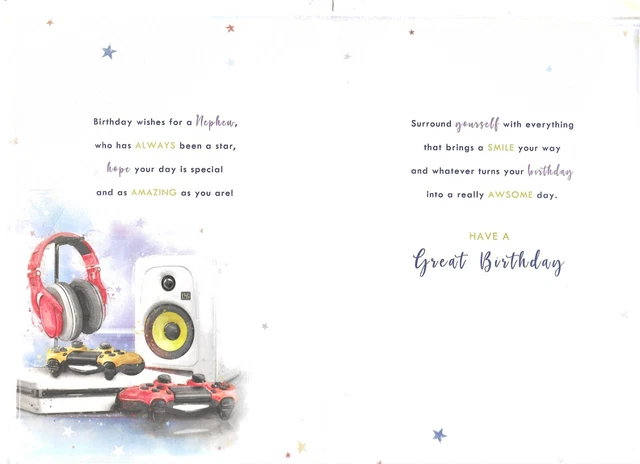 Birthday wishes for a Nephew,
who has ALWAYS been a star,
hope your day is special
and as AMAZING as you are!
Surround yourself with everything
that brings a SMILE your way
and whatever turns your birthday
into a really AWSOME day.
HAVE A
Great Birthday